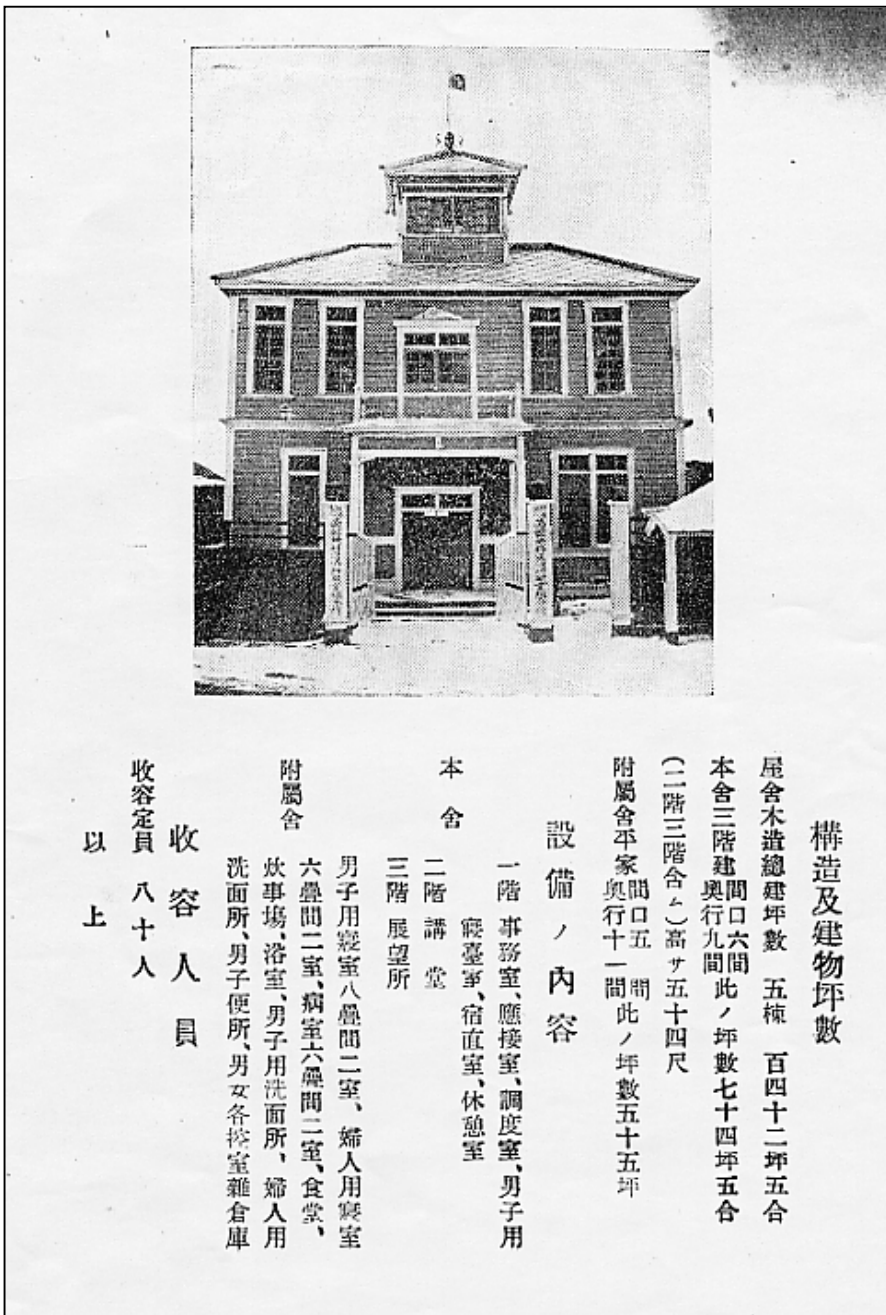 構造及建物坪數
屋舎木造總建坪數　五棟　百四十二坪五合
本舎三階建間口六間奥行九間此ノ坪數七十四坪五合
(二階三階含ム)高サ五十四尺
附屬舎平家間口五間奥行十一間此ノ坪數五十五坪
設備ノ內容
本舎
一階 事務室、應接室、調度室、男子用
寢臺室、宿直室、休憩室
二階 講堂
三階 展望所
附屬舎
男子用寢室八疊間二室、婦人用寢室
六疊間二室、病室六疊間二室、食堂、
炊事場、浴室、男子用洗面所、婦人用
洗面所、男子便所、男女各控室雜倉庫
收容人員
收容定員　八十人
以上